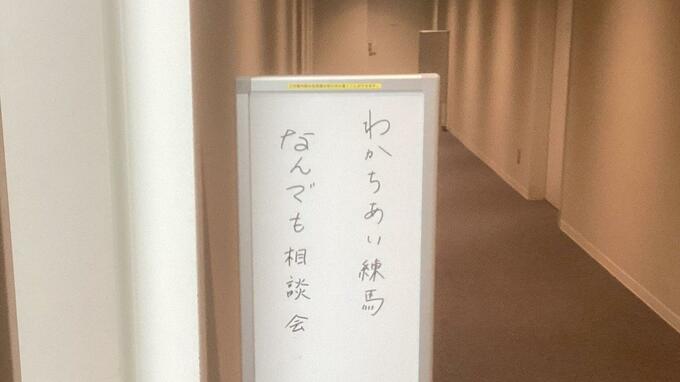 わかちあい練馬
なんでも相談会